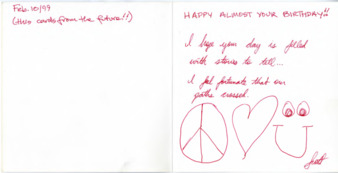 Feb. 10/99
(this card's from the future!!)
HAPPY ALMOST YOUR BIRTHDAY!!
I hope your day is filled
with stories to tell...
I feel fortunate that our
paths crossed.